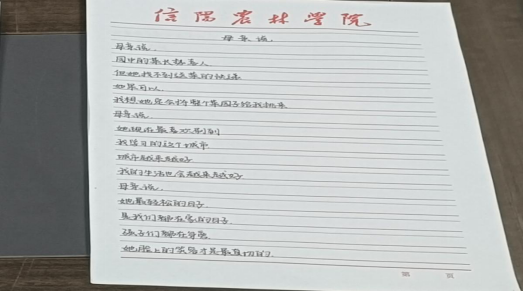 信阳农林学院
母亲说
母亲说
园中的菜长势喜人
但她找不到给菜的快递
如果可以
我想她定会将整个菜园子给我挑来
母亲说
她现在最喜欢
我练习的这个城市
城市越来越好
我的生活也会越来越好
母亲说
她最轻松的日子
是我们都在家的日子
孩子们都在身旁
她脸上的笑容才是最真切的
第 页